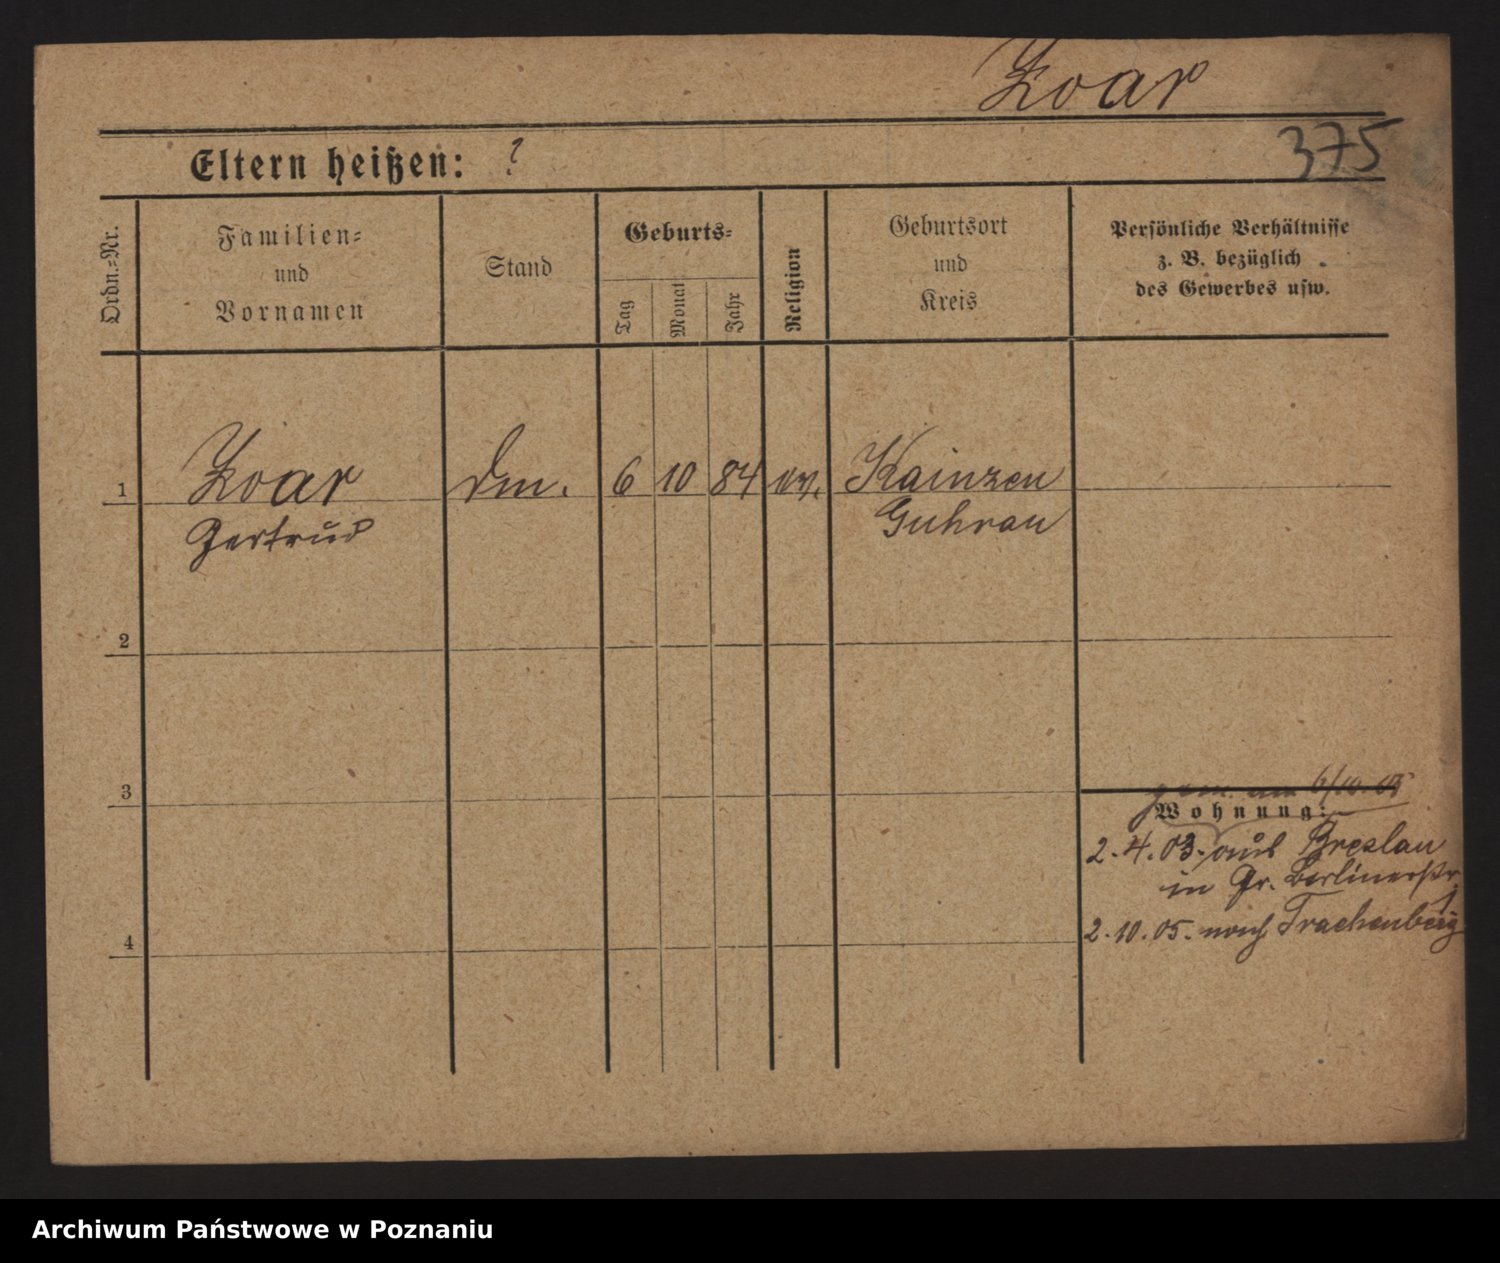 Zoar
375
Eltern heißen: ?
Ordn.-Nr.
Familien-
und
Vornamen
Stand
Geburts-
Tag
Monat
Jahr
Religion
Geburtsort
und
Kreis
Persönliche Verhältnisse
z. B. bezüglich
des Gewerbes usw.
1 Zoar 6 10 84 ev. Kainzen
Gertrud Guhrau
2
3
gem. am 6/10.05
Wohnung:
2.4.03. aus Breslau
in Gr. Berlinerstr
4
2.10.05. nach Trachenberg
Archiwum Państwowe w Poznaniu